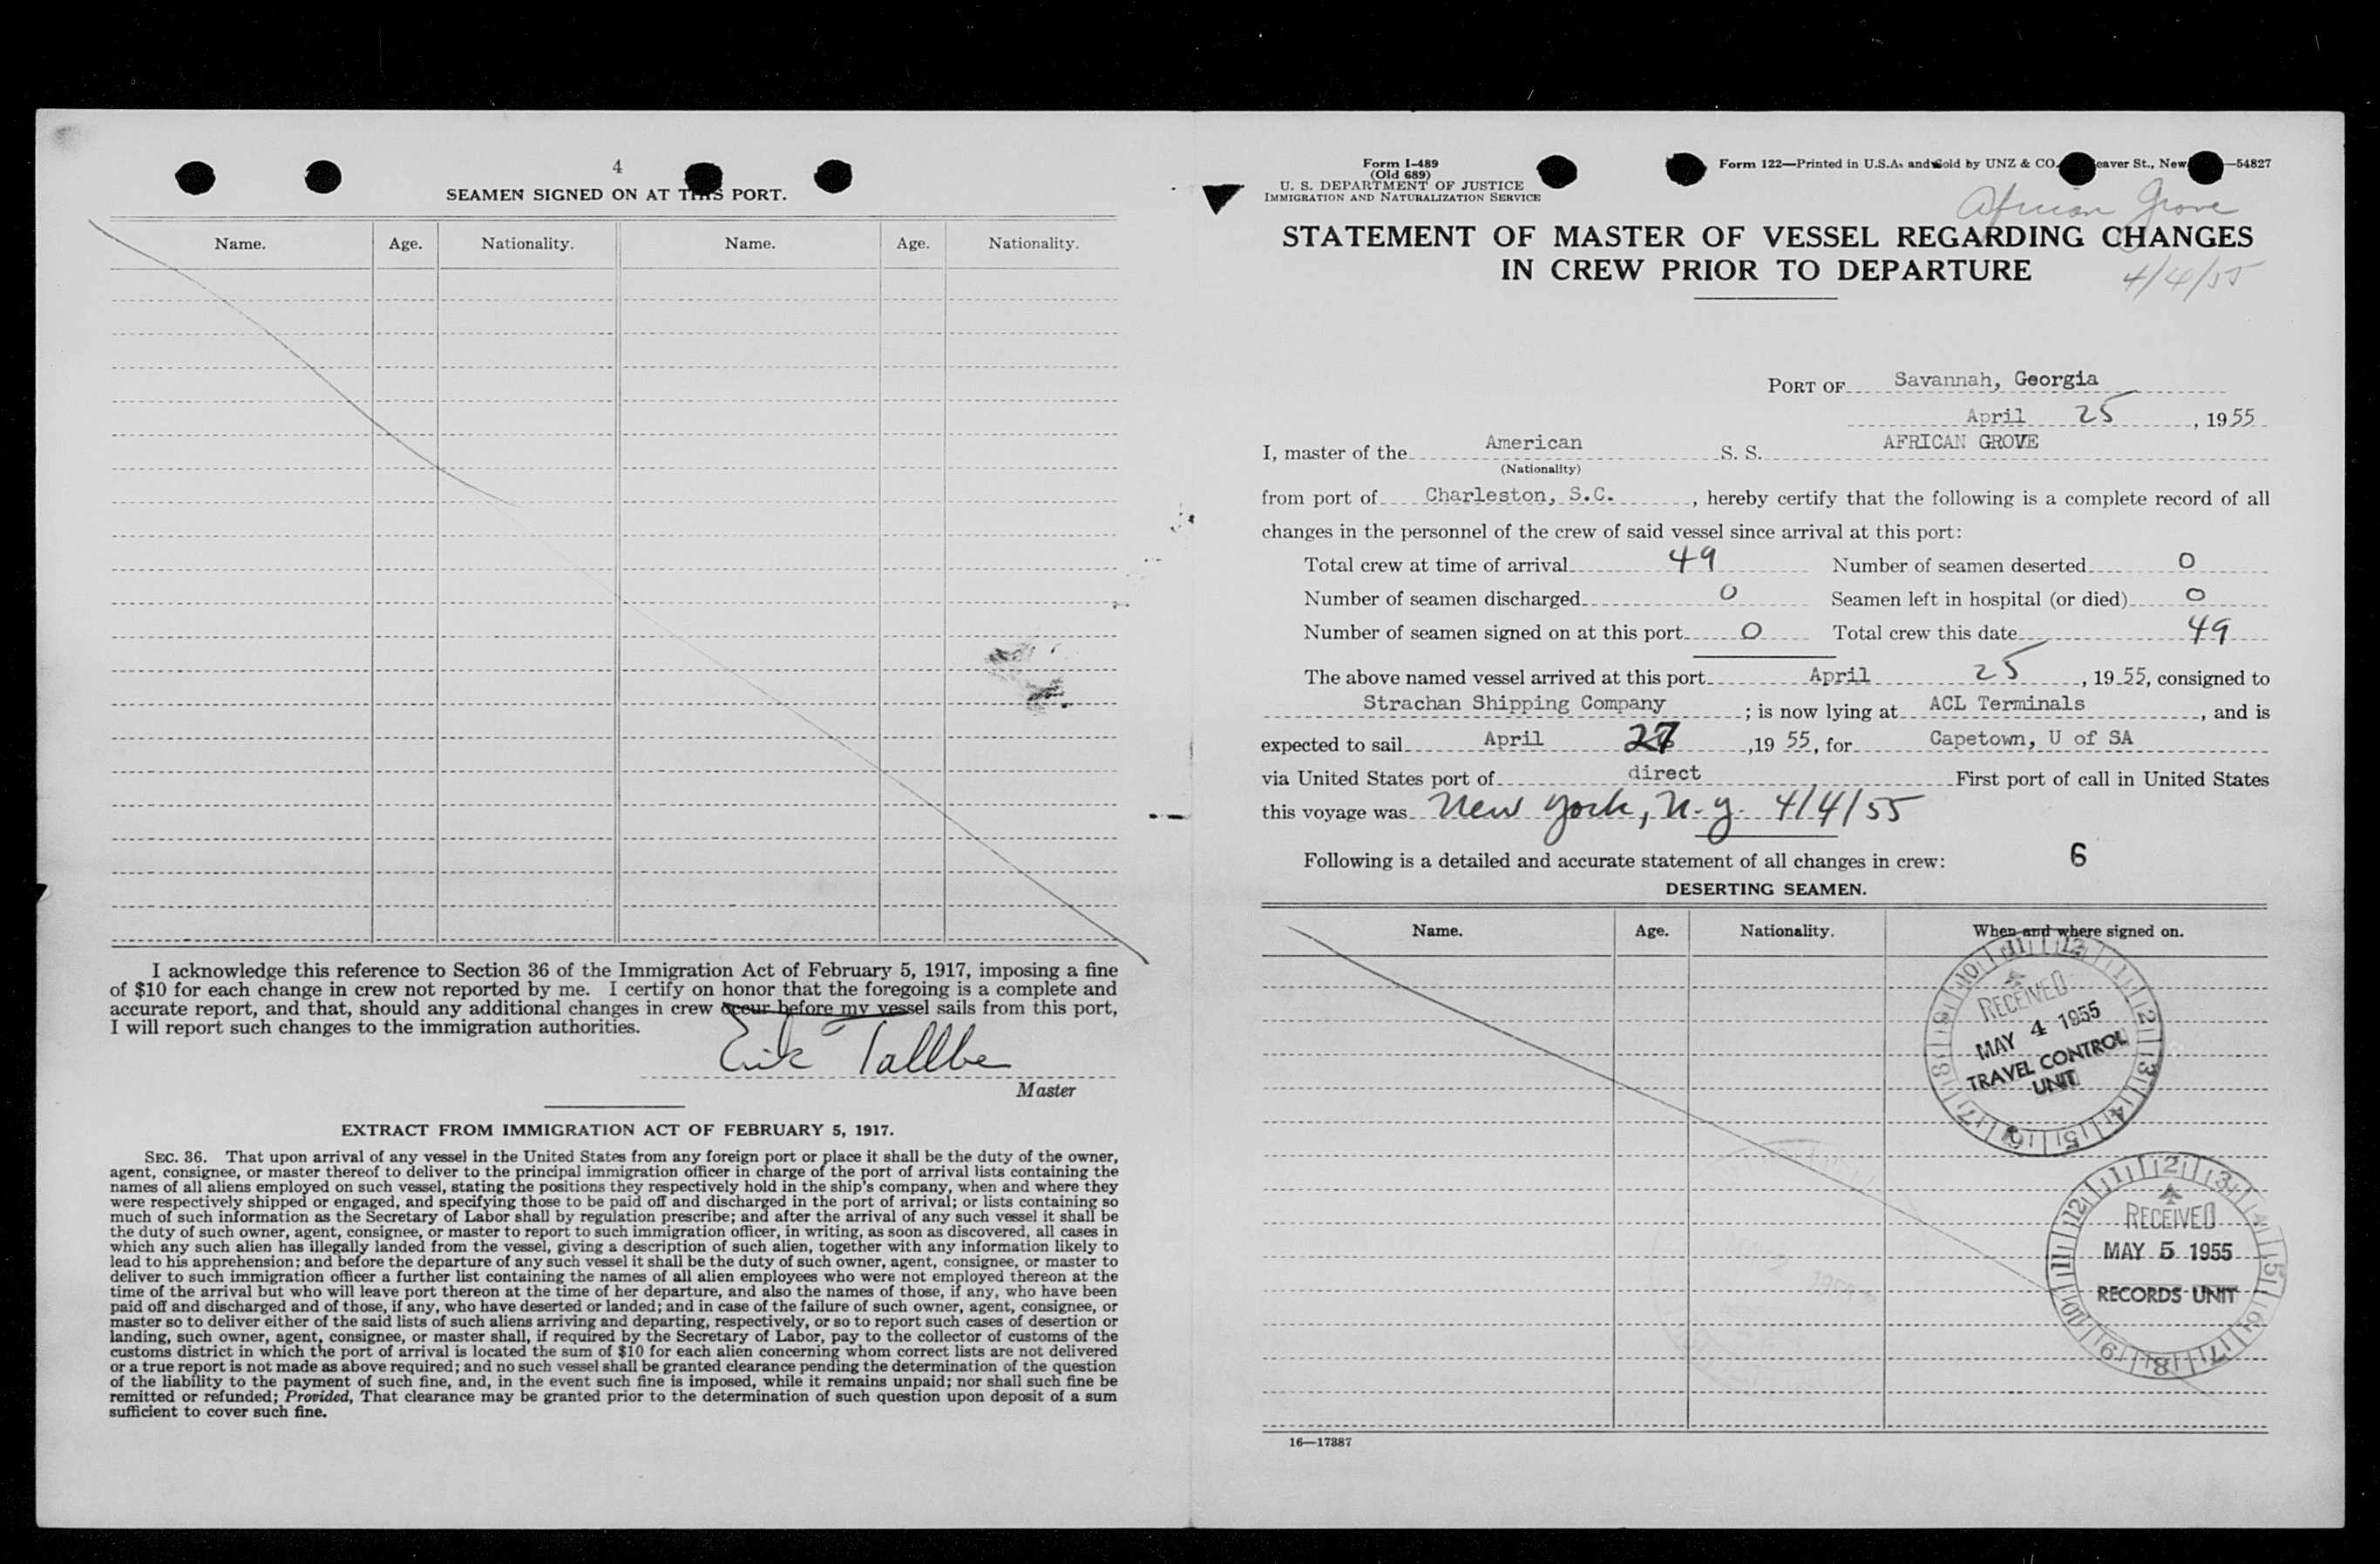 4
SEAMEN SIGNED ON AT THIS PORT.
Name. Age. Nationality. Name. Age. Nationality.
I acknowledge this reference to Section 36 of the Immigration Act of February 5, 1917, imposing a fine
of $10 for each change in crew not reported by me. I certify on honor that the foregoing is a complete and
accurate report, and that, should any additional changes in crew occur before my vessel sails from this port,
I will report such changes to the immigration authorities.
Erik Tallbe
Master
EXTRACT FROM IMMIGRATION ACT OF FEBRUARY 5, 1917.
SEC. 36. That upon arrival of any vessel in the United States from any foreign port or place it shall be the duty of the owner,
agent, consignee, or master thereof to deliver to the principal immigration officer in charge of the port of arrival lists containing the
names of all aliens employed on such vessel, stating the positions they respectively hold in the ship's company, when and where they
were respectively shipped or engaged, and specifying those to be paid off and discharged in the port of arrival; or lists containing so
much of such information as the Secretary of Labor shall by regulation prescribe; and after the arrival of any such vessel it shall be
the duty of such owner, agent, consignee, or master to report to such immigration officer, in writing, as soon as discovered, all cases in
which any such alien has illegally landed from the vessel, giving a description of such alien, together with any information likely to
lead to his apprehension; and before the departure of any such vessel it shall be the duty of such owner, agent, consignee, or master to
deliver to such immigration officer a further list containing the names of all alien employees who were not employed thereon at the
time of the arrival but who will leave port thereon at the time of her departure, and also the names of those, if any, who have been
paid off and discharged and of those, if any, who have deserted or landed; and in case of the failure of such owner, agent, consignee, or
master so to deliver either of the said lists of such aliens arriving and departing, respectively, or so to report such cases of desertion or
landing, such owner, agent, consignee, or master shall, if required by the Secretary of Labor, pay to the collector of customs of the
customs district in which the port of arrival is located the sum of $10 for each alien concerning whom correct lists are not delivered
or a true report is not made as above required; and no such vessel shall be granted clearance pending the determination of the question
of the liability to the payment of such fine, and, in the event such fine is imposed, while it remains unpaid; nor shall such fine be
remitted or refunded; Provided, That clearance may be granted prior to the determination of such question upon deposit of a sum
sufficient to cover such fine.
Form I-489
(Old 689)
U. S. DEPARTMENT OF JUSTICE
IMMIGRATION AND NATURALIZATION SERVICE
Form 122—Printed in U.S.A. and Sold by UNZ & CO. eaver St., New —54827
African Grove
STATEMENT OF MASTER OF VESSEL REGARDING CHANGES
IN CREW PRIOR TO DEPARTURE
4/4/55
PORT OF Savannah, Georgia
April 25, 1955
I, master of the American S. S. AFRICAN GROVE
(Nationality)
from port of Charleston, S.C., hereby certify that the following is a complete record of all
changes in the personnel of the crew of said vessel since arrival at this port:
Total crew at time of arrival 49 Number of seamen deserted 0
Number of seamen discharged 0 Seamen left in hospital (or died) 0
Number of seamen signed on at this port 0 Total crew this date 49
The above named vessel arrived at this port April 25, 1955, consigned to
Strachan Shipping Company; is now lying at ACL Terminals, and is
expected to sail April 27, 1955, for Capetown, U of SA
via United States port of direct First port of call in United States
this voyage was New York, N.Y. 4/4/55
Following is a detailed and accurate statement of all changes in crew: 6
DESERTING SEAMEN.
Name. Age. Nationality. When and where signed on.
RECEIVED
MAY 4 1955
TRAVEL CONTROL
UNIT
RECEIVED
MAY 5 1955
RECORDS UNIT
16—17887